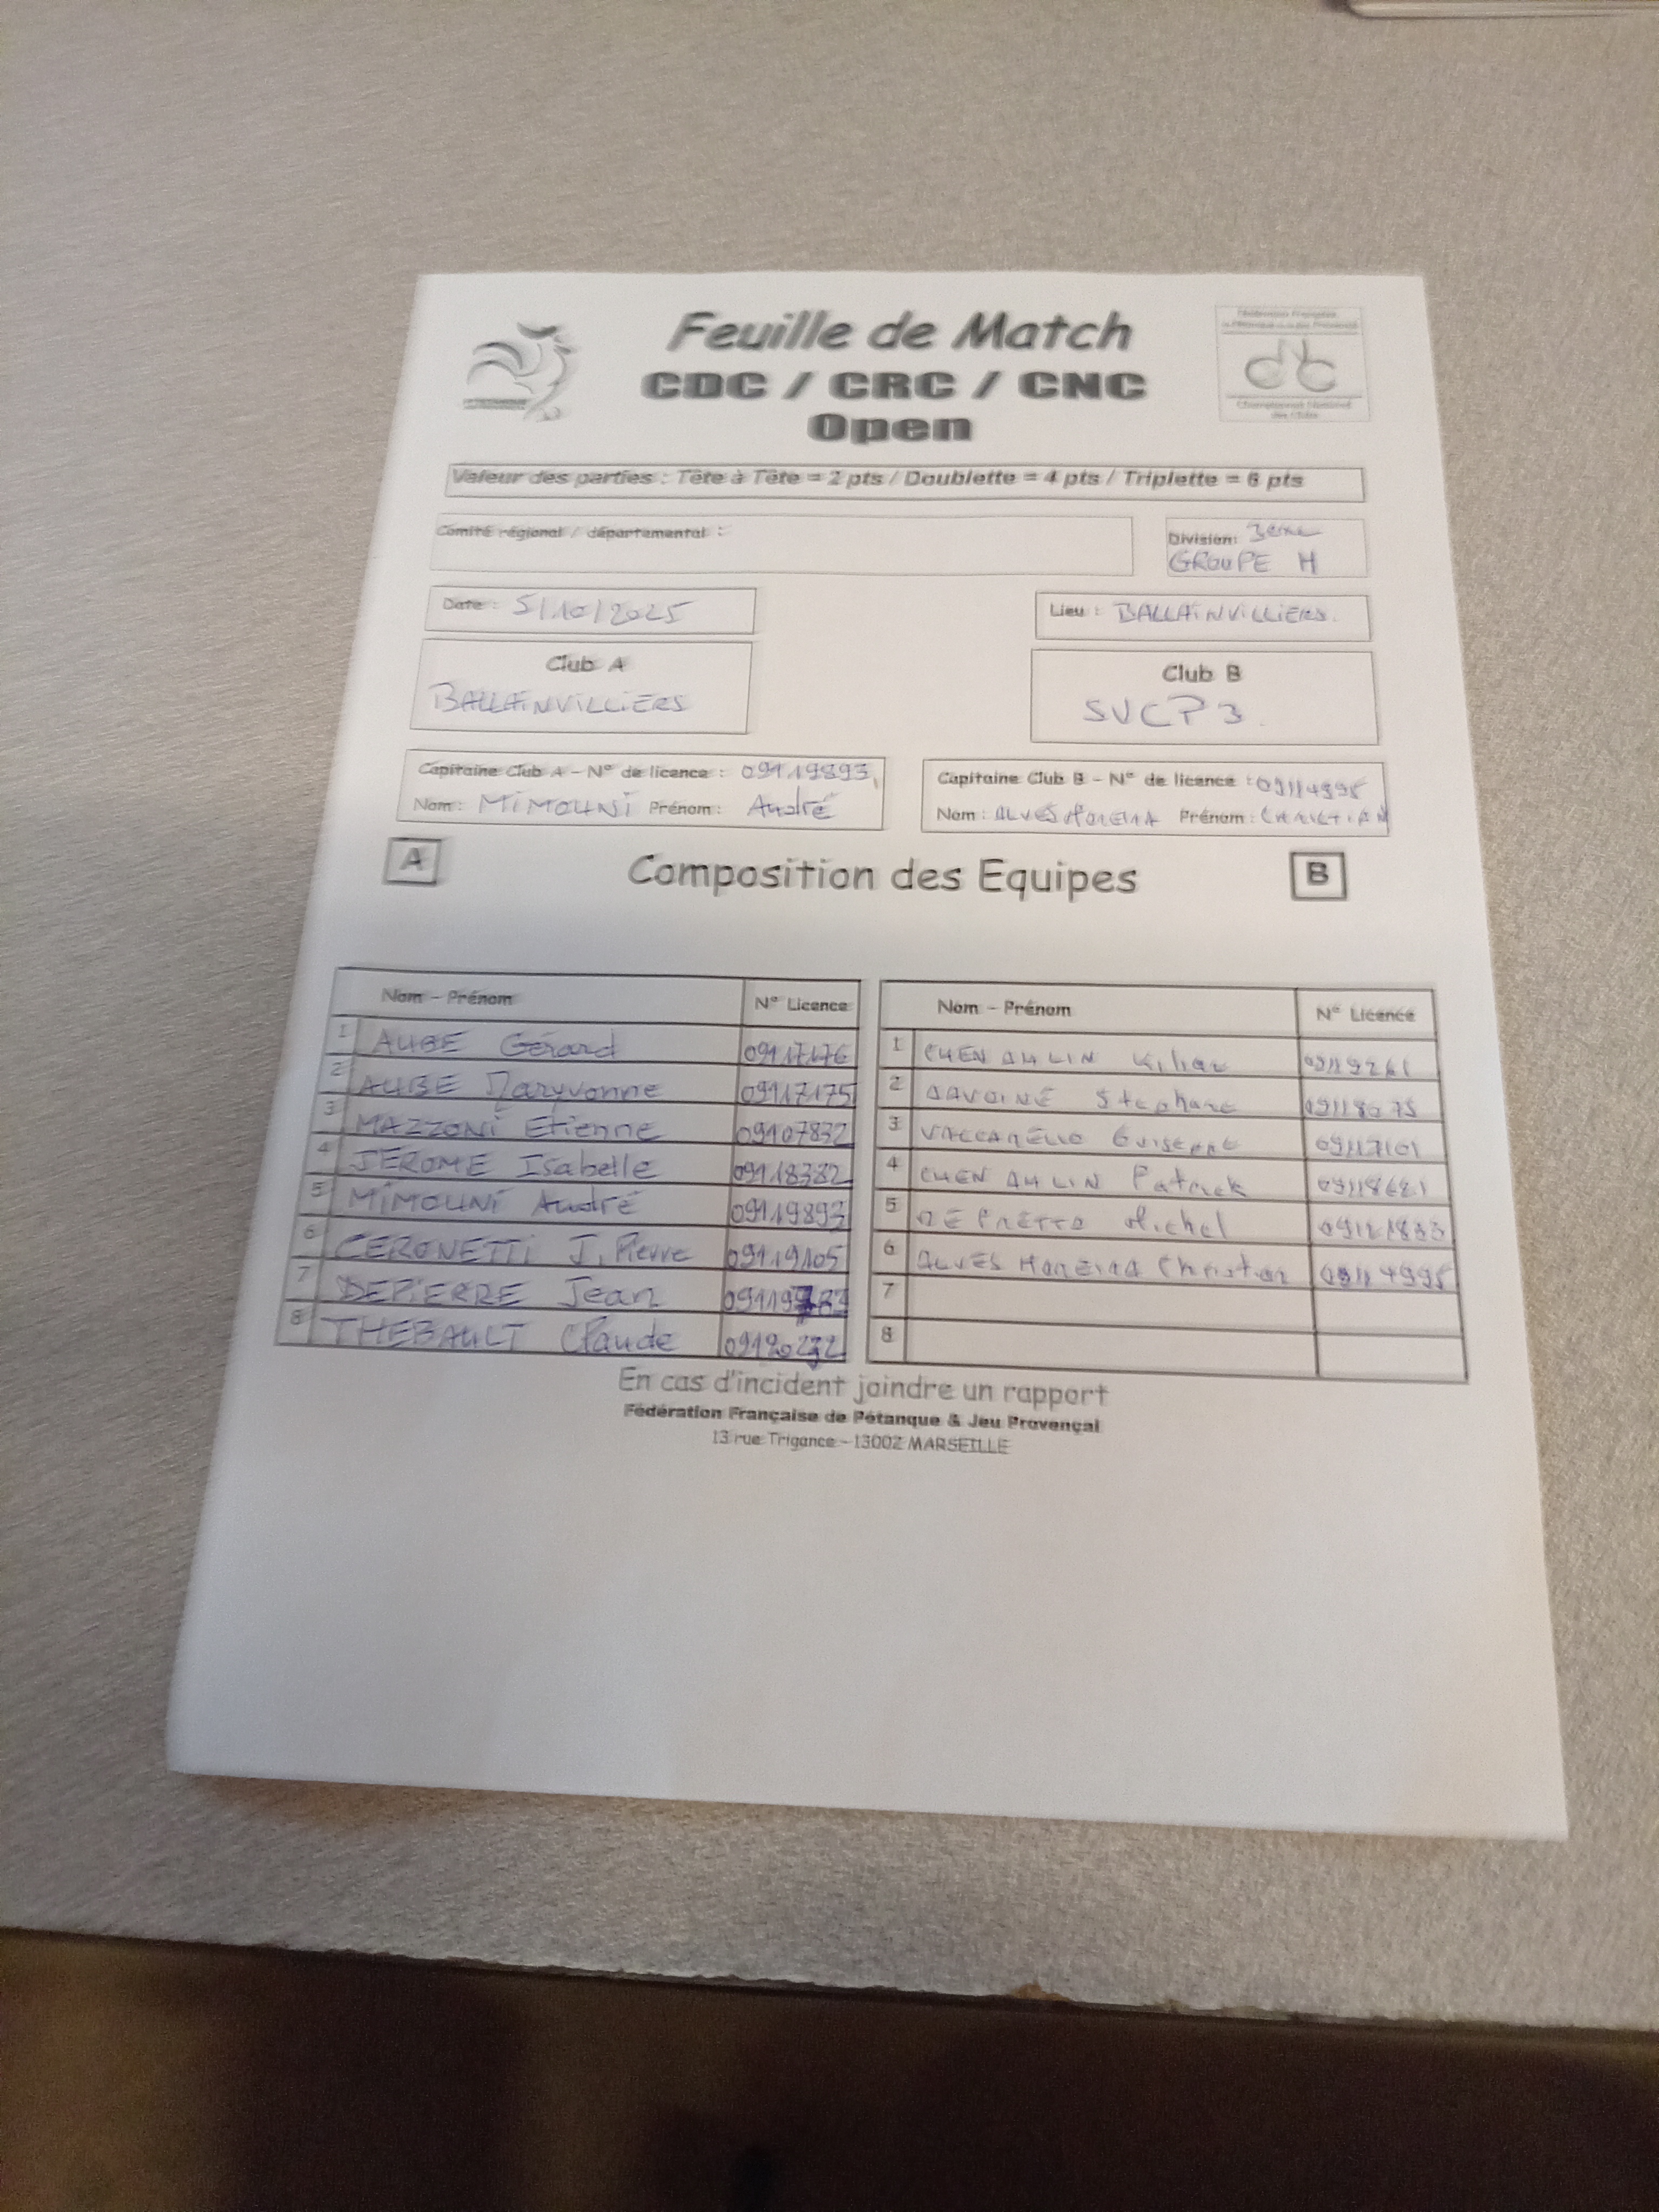 Feuille de Match
CDC / CRC / CNC
Open
Championnat National
des Clubs
Valeur des parties : Tête à Tête = 2 pts / Doublette = 4 pts / Triplette = 6 pts
Comité régional / départemental :
Division: 3ème
GROUPE H
Date : 5/10/2025
Lieu : BALLAINVILLIERS.
Club A
BALLAINVILLIERS
Club B
SVCP 3.
Capitaine Club A - N° de licence : 09119893
Nom : MIMOUNI Prénom : André
Capitaine Club B - N° de licence : 09114995
Nom : ALVES MOREIRA Prénom : CHRISTIAN
A
Composition des Equipes
B
Nom - Prénom N° Licence
1 AUBE Gérard 09117176
2 AUBE Maryvonne 09117175
3 MAZZONI Etienne 09107832
4 JEROME Isabelle 09118382
5 MIMOUNI André 09119893
6 CERONETTI J. Pierre 09119105
7 DEPIERRE Jean
8 THEBAULT Claude
Nom - Prénom N° Licence
1 CHEN AH LIN Kilian
2 DAVOINE Stephane
3 VACCARELLO Guiseppe 09117101
4 CHEN AH LIN Patrick
5 DE PRETTO Michel
6 ALVES MOREIRA Christian 09114995
7
8
En cas d'incident joindre un rapport
Fédération Française de Pétanque & Jeu Provençal
13 rue Trigance - 13002 MARSEILLE